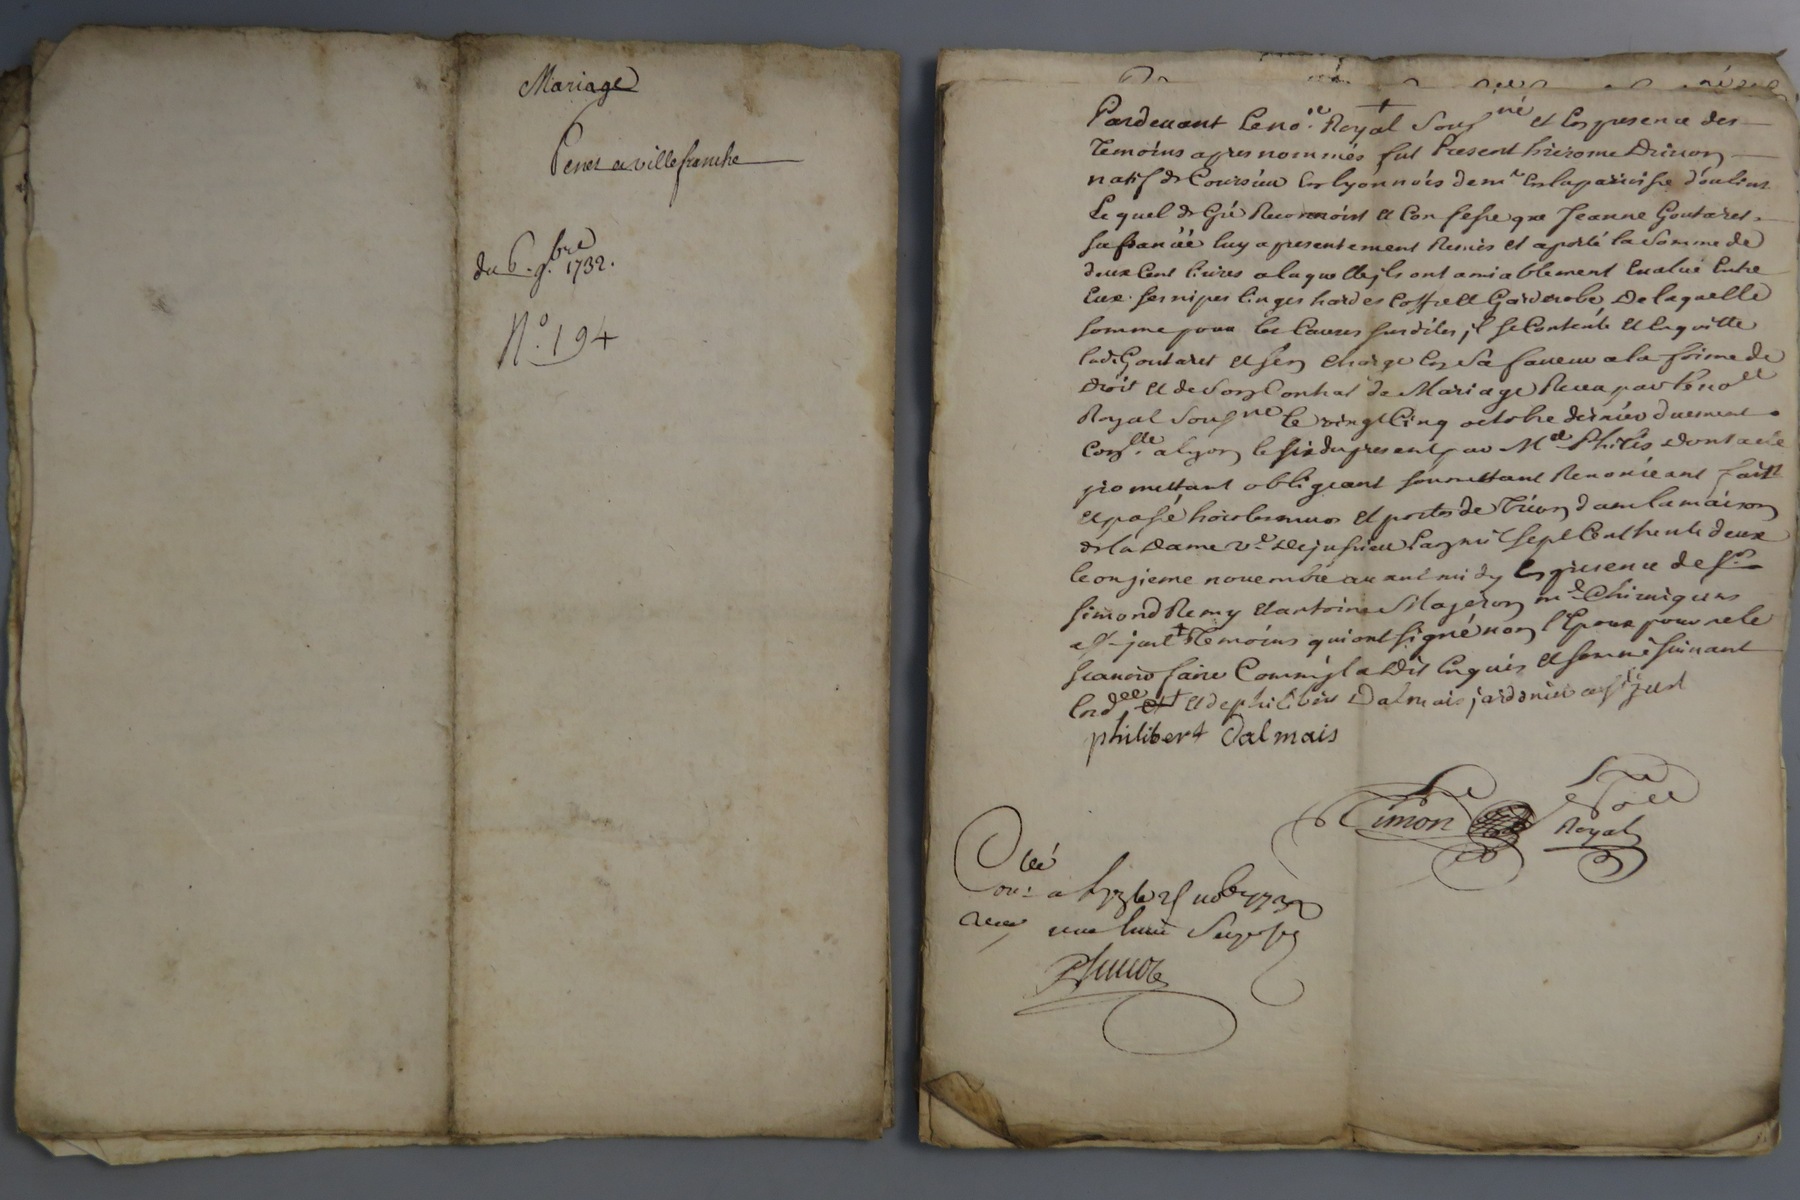 Mariage
Penet a villefranche
du 6. 9.bre 1732.
N.° 194
Pardevant le no.re Royal Souss.né et En presence des
Temoins apres nommés fut Present hierome Drivon
natif de Coursieu En lyonnois dem.t En la paroisse d'oulins
Lequel de Gré Reconnoist et Confesse que Jeanne Goutaret
sa fiancéé luy a presentement Remis et aporté la Somme de
deux Cent livres a laquelle ils ont amiablement Evalué Entre
Eux ses nipes linges hardes Coffre et Garderobe, De laquelle
somme pour les Causes susdites, il se Contente et En quitte
lad. Goutaret et s'en Charge En Sa faveur a la forme de
Droit et de Son Contrat de Mariage Receu par le no.re
Royal Souss.né le vingt Cinq octobre dernier duement
Con.llé a lyon le six du present par M.r dont acte
promettant obligeant soumettant Renonceant fait
et passé hors les murs et portes de Trion dans la maison
de la Dame v.e Dejussieu l'an mil sept Cent trente deux
le onzieme novembre avant midy En presence de S.r
Simond Remy et antoine Mazeron m.d Chirurgiens
aud. Temoins qui ont signé non l'Epoux pour ne le
scavoir faire Comme il a Dit Enquis et sommé suivant
lord.ce et et de philibert Dalmais jardinier
philibert Dalmais
Simon
no.re
Royal
Con.llé a lyon le 25 nobre 1732
Receu une livre Seize sols